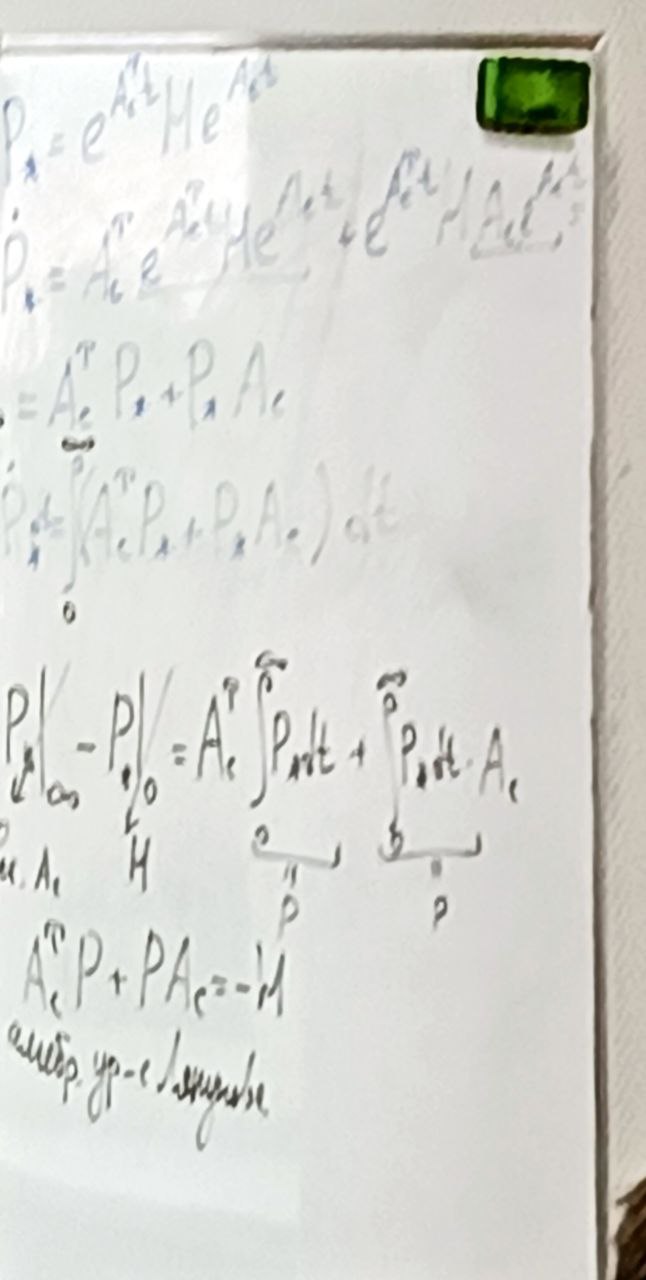 P_* = e^{A_c^T t} H e^{A_c t}
Ṗ_* = A_c^T e^{A_c^T t} H e^{A_c t} + e^{A_c^T t} H A_c e^{A_c t} =
= A_c^T P_* + P_* A_c
∫_0^∞ (A_c^T P_* + P_* A_c) dt
P_*|_∞ - P_*|_0 = A_c^T ∫_0^∞ P_* dt + ∫_0^∞ P_* dt · A_c
A_c H
P P
A_c^T P + P A_c = -H
алгебр. ур-е Ляпунова